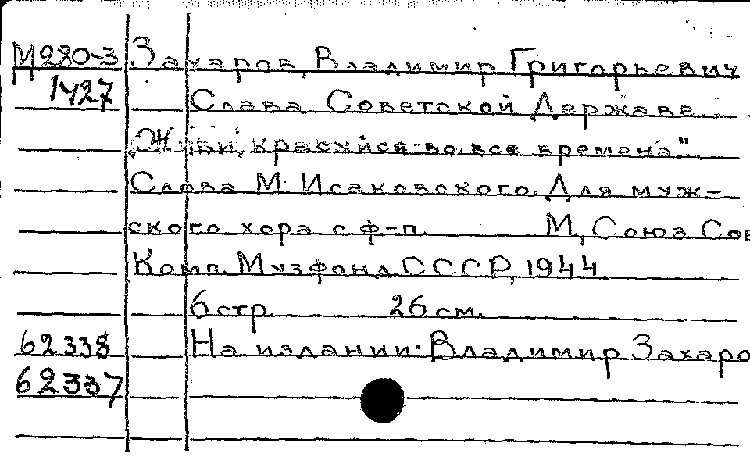 М280-3 Захаров, Владимир Григорьевич
1427 Слава Советской Державе.
„Живи, красуйся во все времена"
Слова М. Исаковского. Для муж-
ского хора с ф-п. М, Союз Сов
Комп. Музфонд СССР, 1944
6 стр. 26 см.
62338 На издании: Владимир Захаро
62337